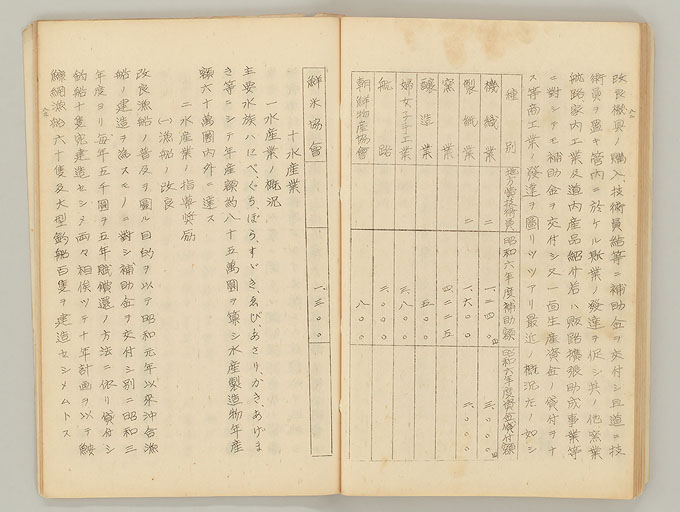 改良機具ノ購入、技術員給等ニ補助金ヲ交付シ且道ニ技
術員ヲ置キ管内ニ於ケル斯業ノ発達ヲ促シ其ノ他窯業
航路、家内工業及道内産品紹介若ハ販路擴張助成事業等
ニ對シテモ補助金ヲ交付シ又一面生産資金ノ貸付ヲナ
ス等商工業ノ発達ヲ圖リツツアリ最近ノ概況左ノ如シ
種別 地方費技術員 昭和六年度補助額 昭和六年度資金貸付額
機織業 二 一、二四〇 三、〇〇〇
製紙業 二 一、六〇〇 二、〇〇〇
窯業 四二五
醸造業 五〇
婦女子手工業 三、八〇〇
航路 三、〇〇〇
朝鮮物産協會 八〇〇
鮮米協會 一、三〇〇
十 水産業
一 水産業ノ概況
主要水族ハにべ、ぐち、ぼら、すゞき、ゑび、あさり、かき、あげま
き等ニシテ年産額約八十五萬圓ヲ算シ水産製造物年産
額六十萬圓内外ニ達ス
二 水産業ノ指導奨励
(一) 漁船ノ改良
改良漁船ノ普及ヲ圖ル目的ヲ以テ昭和元年以来沖合漁
船ノ建造ヲ為スモノニ對シ補助金ヲ交付シ別ニ昭和三
年度ヨリ毎年五千圓ヲ五年賦償還ノ方法ニ依リ貸付シ
釣船十隻宛建造セシメ両々相俟ツテ十年計画ヲ以テ鮟
鱇網漁船六十隻及大型釣船百隻ヲ建造セシメムトス